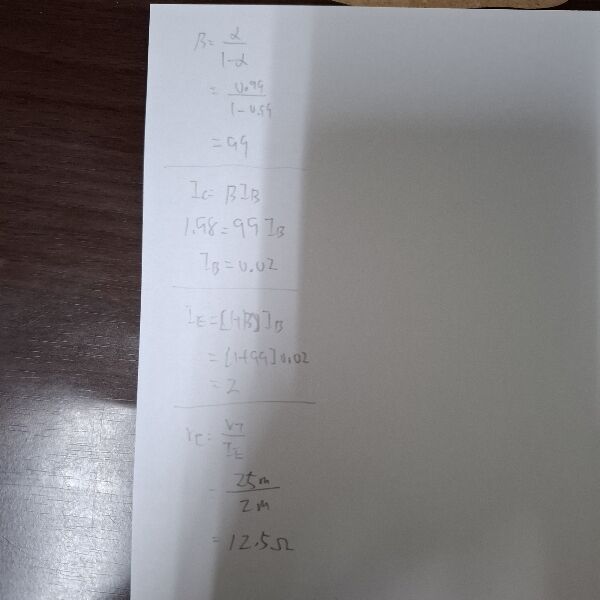 β = α / 1-α
= 0.99 / 1-0.99
= 99
Ic = βIB
1.98 = 99 IB
IB = 0.02
IE = [1+β] IB
= [1+99] 0.02
= 2
re = VT / IE
= 25m / 2m
= 12.5Ω